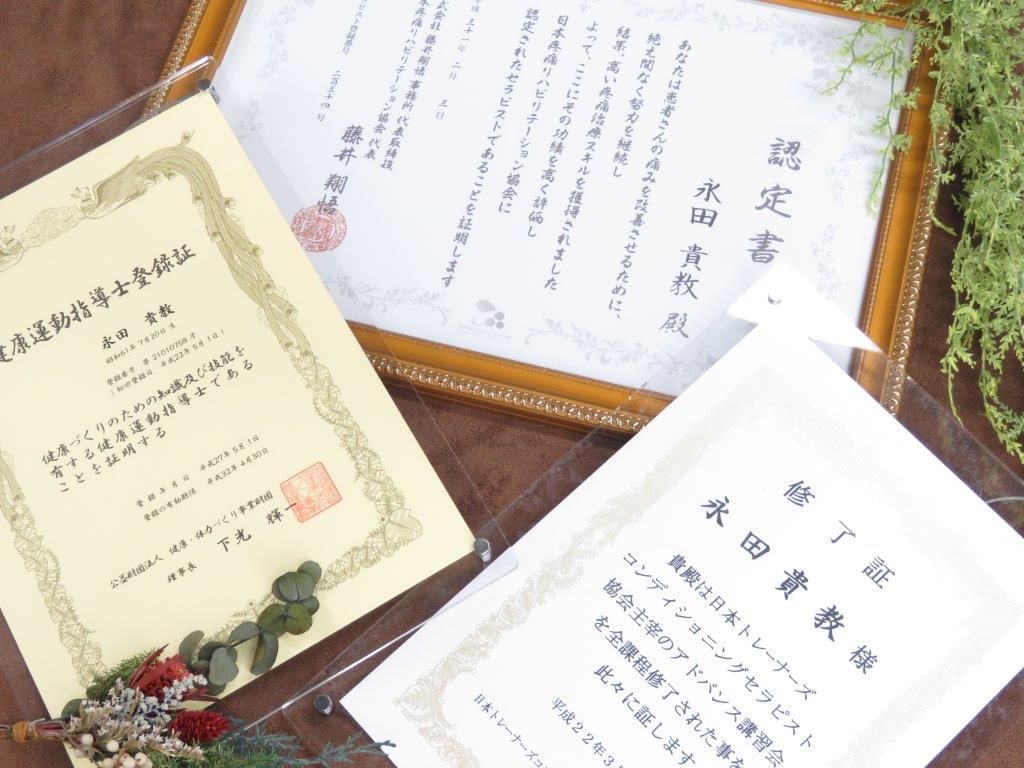 認定書
永田 貴教 殿
あなたは患者さんの痛みを改善させるために、
絶え間なく努力を継続し
結果、高い疼痛治療スキルを獲得されました
よって、ここにその功績を高く評価し
日本疼痛リハビリテーション協会に
認定されたセラピストであることを証明します
平成三十一年 二月 三日
セラピスト登録番号 二〇三十四号
式会社 藤井翔悟事務所 代表取締役
本疼痛リハビリテーション協会 代表
藤井 翔悟
健康運動指導士登録証
永田 貴教
昭和61年7月20日生
登録番号 第21010758号
(初回登録日 平成22年5月1日)
健康づくりのための知識及び技能を
有する健康運動指導士である
ことを証明する
登録年月日 平成27年5月1日
登録の有効期限 平成32年4月30日
公益財団法人 健康・体力づくり事業財団
理事長 下光 輝一
修了証
永田貴教様
貴殿は日本トレーナーズ
コンディショニングセラピスト
協会主宰のアドバンス講習会
を全課程修了された事を
此々に証します
平成22年3月
日本トレーナーズコン